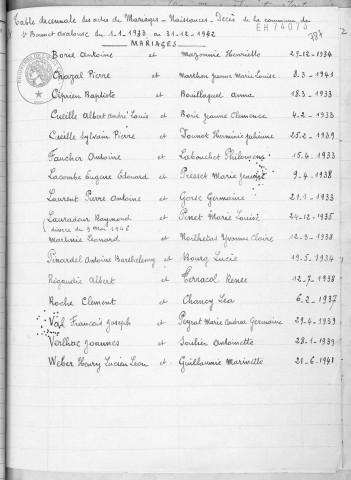 Table décennale des actes de Mariages - Naissances - Décès de la commune de
St Bonnet Avalouze du 1.1.1933 au 31.12.1942
MARIAGES
Borie Antoine et Mazonnie Henriette 29-12-1934
Chazal Pierre et Marthon Jeanne Marie Louise 8.3-1941
Ceprien Baptiste et Bouillaguet Anna 18.3-1933
Cueille Albert André Louis et Borie Jeanne Clemence 4.2-1933
Cueille Sylvain Pierre et Julienne 25.2-1939
Faucher Antoine et Labouchet 15.4-1933
Lacombe Eugene Edouard et Presset Marie 9-4-1938
Laurent Pierre Antoine et Gorse Germaine 21.1-1933
Lauradour Raymond et Pinet Marie Louise 24-12-1935
divorce du 9 mai 1946
Martinie Leonard et Yvonne Claire 12-3-1938
Pinardel Antoine Barthelemy et Bourg Lucie 19.5-1934
Rigaudie Albert et Terracol Renée 12-7-1938
Roche Clement et Lea 6.2-1937
Val François Joseph et Peyrat Marie Andrea Germaine 29-4-1939
Verlhac Joannes et Soulier Antoinette 28-1-1939
Weber Henry Lucien Leon et Guillaumie Marinette 21-6-1941